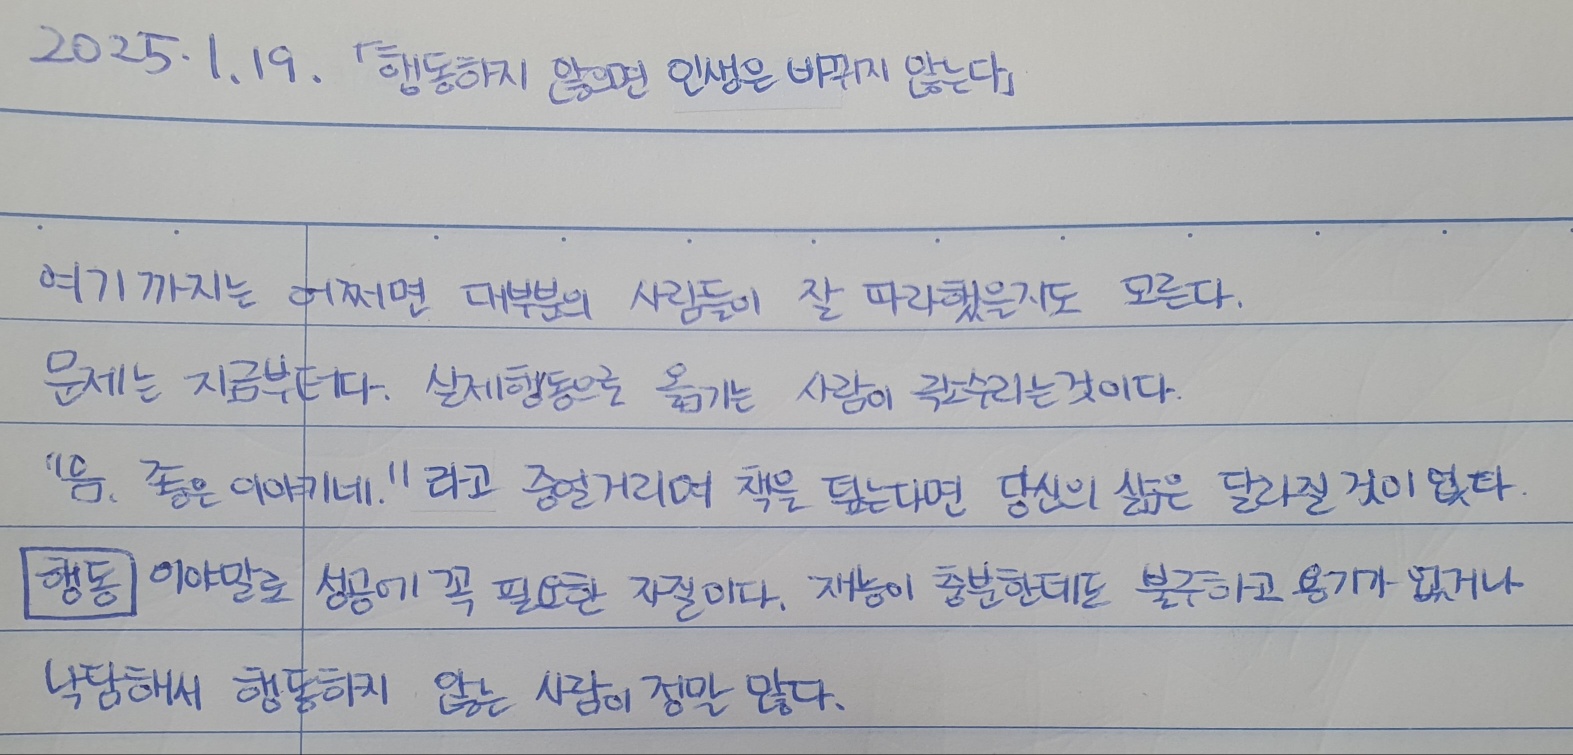 2025.1.19. 「행동하지 않으면 인생은 바뀌지 않는다」
여기까지는 어쩌면 대부분의 사람들이 잘 따라했을지도 모른다.
문제는 지금부터다. 실제행동으로 옮기는 사람이 극소수라는것이다.
"음. 좋은 이야기네." 라고 중얼거리며 책을 덮는다면 당신의 삶은 달라질것이 없다.
행동 이야말로 성공에 꼭 필요한 자질이다. 재능이 충분한데도 불구하고 용기가 없거나
낙담해서 행동하지 않는 사람이 정말 많다.